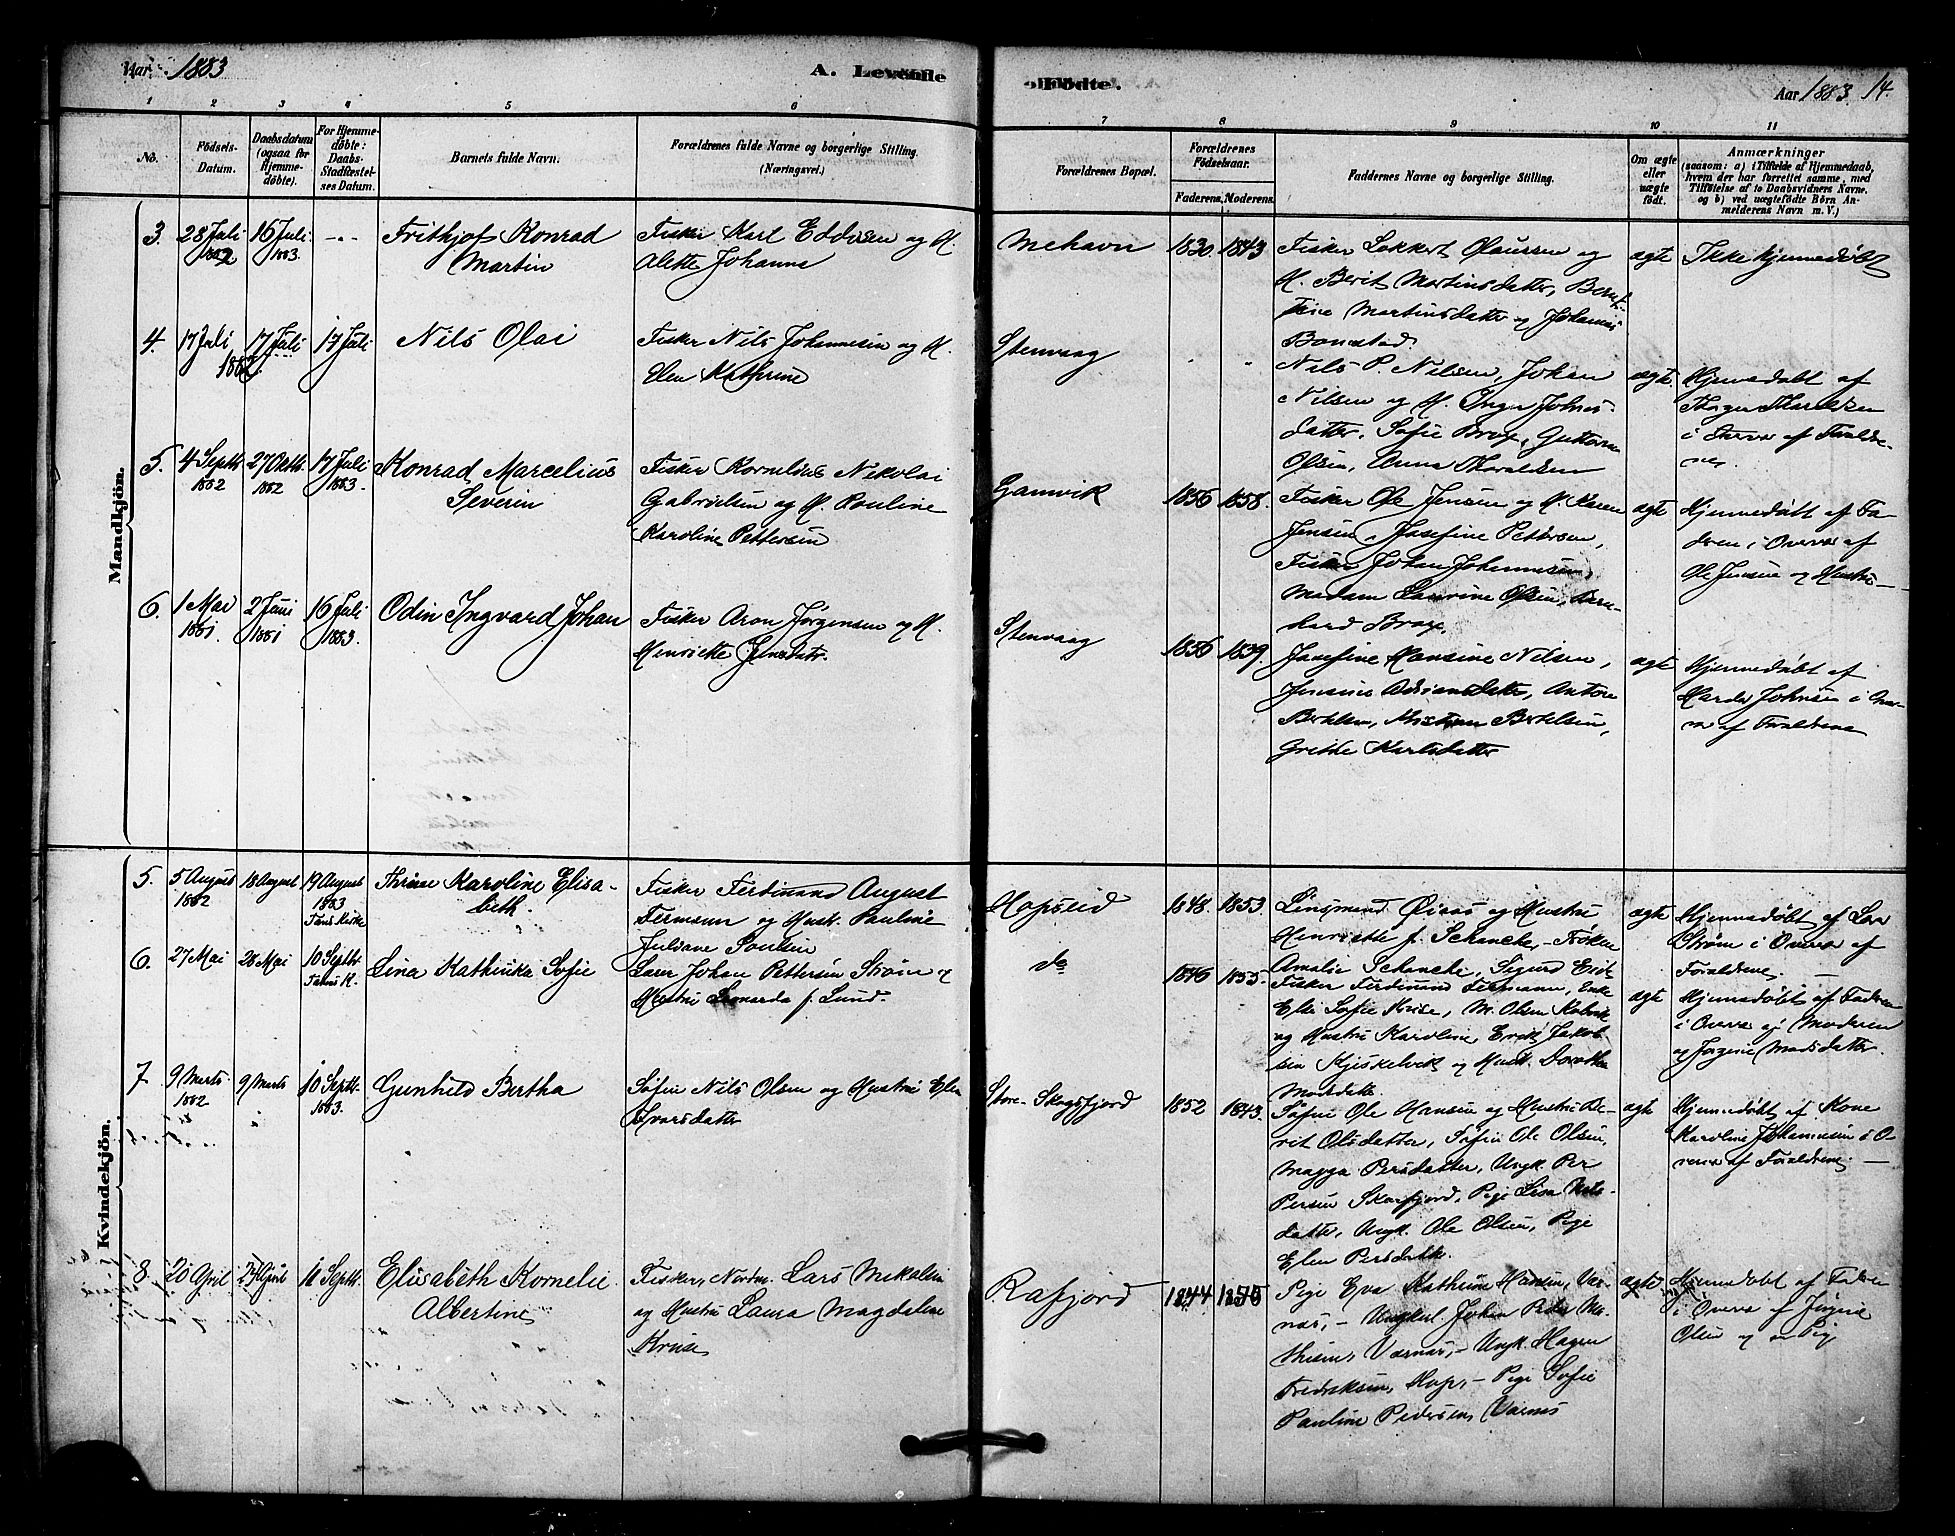 Aar 1883
A. Levende
Fødte.
Aar 1883. 14.
1 2 3 4 5 6
7 8 9 10 11
No.
Födsels-
Datum.
Daabsdatum
(ogsaa for
Hjemme-
döbte).
For Hjemme-
döbte:
Daabs-
Stadfæstel-
ses Datum.
Barnets fulde Navn.
Forældrenes fulde Navne og borgerlige Stilling.
(Næringsvei.)
Forældrenes Bopæl.
Forældrenes
Födselsaar.
Faderens. Moderens.
Faddernes Navne og borgerlige Stilling.
Om ægte
eller
uægte
födt.
Anmærkninger
(saasom: a) i Tilfælde af Hjemmedaab,
hvem der har forrettet samme, med
Tilföielse af to Daabsvidners Navne,
og b) ved uægtefödte Börn An-
melderens Navn m. V.)
Mandkjön.
3. 28 Juli 1882 16 Juli 1883. -"-
Frithjof Konrad
Martin
Fisker Karl Eddisen og H.
Alette Johanna
Mehavn 1830 1843
Fisker Lokkert Olaussen og
H. Berit Martinsdatter,
Martinsdatter og Johannes
Bonestad.
ægte Ikke hjemmedøbt
4. 17 Juli 1882 17 Juli 17 Juli
Nils Olai
Fisker Nils Johannesen og H.
Elen Kathrine
Stenvaag " "
Nils P. Nilsen, Johan
Nilsen og H. Inger Johns-
datter, Sofie Brox, Guttorm
Olsen, Anna Thoraldsen
ægte. Hjemmedøbt af
i Overvær af Forældre-
nes.
5. 4 Septbr 1882 27 Oktbr 1882 17 Juli 1883.
Konrad Marcelius
Severin
Fisker Kornelius Nikolai
Gabrielsen og H. Pauline
Karoline Pettersen
Gamvik 1856 1858.
Fisker Ole Jensen og H. Karen
Jensen, Josefine Pettersen,
Fisker Johan Johannesen,
Madam Laurine Olsen, Bern-
hard Brox,
ægte Hjemmedøbt af Fa-
deren i Overvær af
Ole Jensen og Hustru
6. 1 Mai 1881. 2 Juni 1881 16 Juli 1883.
Odin Ingvard Johan
Fisker Aron Jørgensen og H.
Henrikke Jensdatr.
Stenvaag 1856 1859.
Josefine Hansine Nilsen,
Adriansdatter, Anton
Bertelsen, Kristian Bertelsen,
Grethe Karlsdatter
ægte Hjemmedøbt af
Johnsen i Over-
vær af Forældrene
Kvindekjön.
5. 5 August 1882 18 August 19 August 1883
Tans Kirke
Karoline Elisa-
beth.
Fisker Ferdinand August
Fermann og Hust. Pauline
Juliane Poulsen
Hopseid 1848. 1853.
Lensmand og Hustru
Henriette f. Schancke - Frøken
Amalie Schancke, Sigurd
ægte Hjemmedøbt af Lars
Strøm i Overvær af
Forældrene. —
6. 27 Mai 28 Mai 10 Septbr
Lina Kathinka Sofie
Johan Pettersen Strøm og
Hustru Leonarda f. Lund.
do 1846 1855.
Fisker Ferdinand Fermann, Enke
Else Sofie Krise, M. Olsen
og Hustru Karoline, Erik Jakob-
sen og Hust. Dorothea
Madsdatter.
ægte Hjemmedøbt af Faderen
i Overvær af Moderen
og Jørgine Madsdatter.
7 9 Marts 1882 9 Marts 10 Septbr. 1883.
Gunhild Bertha
Søfin Nils Olsen og Hustru Elen
Ivarsdatter
Store-Skogsfjord 1852 1843.
Søfin Ole Hansen og Hustru Be-
rit Olsdatter, Søfin Ole Olsen,
Magga Persdatter, Ungk. Per
Persen Skarfjord, Pige Lisa Nils-
datter, Ungk. Ole Olsen, Pige
Elen Persdatter.
ægte Hjemmedøbt af Kone
Karoline Johannesen i O-
vervær af Forældrene. —
8 20 April 27 April 11 Septbr.
Elisabeth Kornelie
Albertine
Fisker, Nordm. Lars Mikalsen
og Hustru Laura Magdalene
Krise
Rafjord 1844 1855
Pige Eva Kathrine Hansen, Vær-
næs, - Ungkarl Johan Peder Ma-
thisen, Værnæs, - Ungk. Hagen
Fredriksen, Hop, - Pige Sofie
Pauline Pedersen, Værnes
ægte Hjemmedøbt af Faderen
i Overvær af Jørgine
Olsen og en Pige